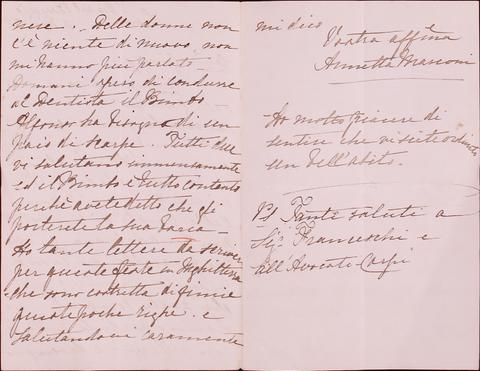 nese. - Delle donne non
c'è niente di nuovo, non
mi hanno più parlato -
Domani spero di condurre
al Dentista il Bimbo -
Alfonso ha bisogno di un
paio di scarpe. Tutti due
vi salutano immensamente
ed il Bimbo è tutto contento
perchè avete detto che gli
porterete la sua
Ho tante lettere da scriver
per queste feste in Inghilterra
che sono costretta di finire
queste poche righe. e
salutandovi caramente
mi dico
Vostra affma
Annetta Marconi
Ho molto piacere di
sentire che vi siete ordinato
un bell'abito.
PS Tanti saluti a
Sigr Franceschi e
all'Avocato Carpi